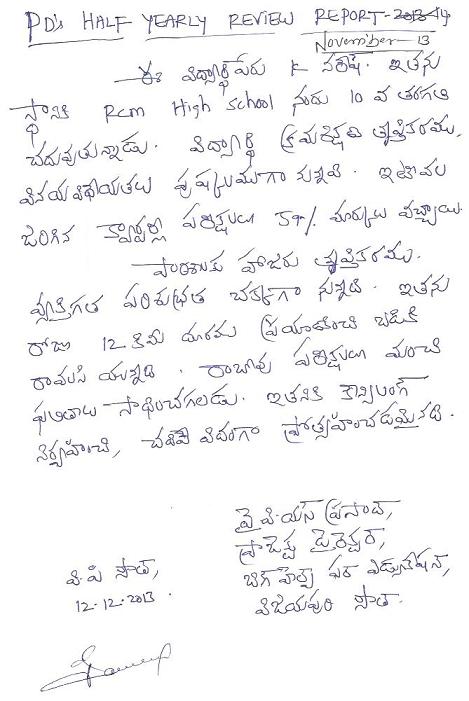 PD's HALF YEARLY REVIEW REPORT - 2013-14
November - 13
ఈ విద్యార్థి పేరు K నరేష్. ఇతను
స్థానిక Rcm High school నందు 10 వ తరగతి
చదువుతున్నాడు. విద్యార్థి క్రమశిక్షణ తృప్తికరము,
వినయవిధేయతలు పుష్కలముగా ఉన్నవి. ఇటీవల
జరిగిన క్వార్టర్లి పరీక్షలు 59% మార్కులు వచ్చాయి.
పాఠశాలకు హాజరు తృప్తికరము.
వ్యక్తిగత పరిశుభ్రత చక్కగా ఉన్నది. ఇతను
రోజు 12 కిమీ దూరము ప్రయాణించి బడికి
రావలసి యున్నది. రాబోవు పరీక్షలు మంచి
ఫలితాలు సాధించగలడు. ఇతనికి కౌన్సిలింగ్
నిర్వహించి, చదివే విదంగా ప్రోత్సహించడమైనది.
వై.పి.యస్ ప్రసాద్,
ప్రాజెక్టు డైరెక్టర్,
వి.పి సౌత్, బిగ్ హెల్ప్ ఫర్ ఎడ్యుకేషన్,
12-12-2013 విజయపురి సౌత్.